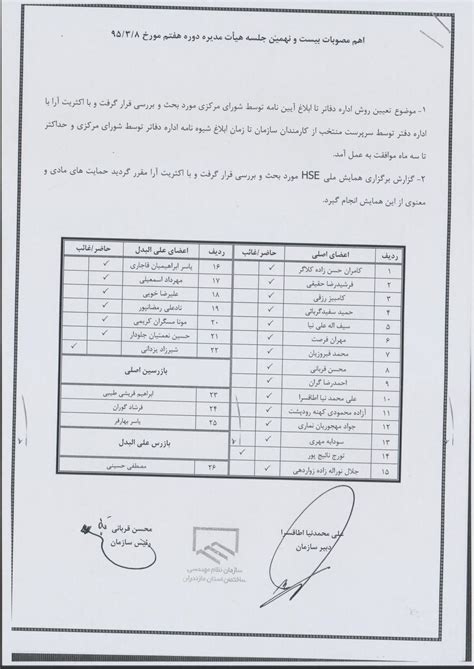 اهم مصوبات بیست و نهمین جلسه هیأت مدیره دوره هفتم مورخ ۹۵/۳/۸
۱- موضوع تعیین روش اداره دفاتر تا ابلاغ آیین نامه توسط شورای مرکزی مورد بحث و بررسی قرار گرفت و با اکثریت آرا با
اداره دفتر توسط سرپرست منتخب از کارمندان سازمان تا زمان ابلاغ شیوه نامه اداره دفاتر توسط شورای مرکزی و حداکثر
تا سه ماه موافقت به عمل آمد.
۲- گزارش برگزاری همایش ملی HSE مورد بحث و بررسی قرار گرفت و با اکثریت آرا مقرر گردید حمایت های مادی و
معنوی از این همایش انجام گیرد.
ردیف اعضای اصلی حاضر/غائب ردیف اعضای علی البدل حاضر/غائب
۱ کامران حسن زاده کلاگر ✓ ۱۶ یاسر ابراهیمیان قاجاری ✓
۲ فرشیدرضا حقیقی ✓ ۱۷ مهرداد اسمعیلی ✓
۳ کامبیز رزقی ✓ ۱۸ علیرضا خویی ✓
۴ حمید سفیدگریائی ✓ ۱۹ نادعلی رمضانپور ✓
۵ سیف اله علی نیا ✓ ۲۰ مونا مسگران کریمی ✓
۶ مهران فرصت ✓ ۲۱ حسین نعمتیان جلودار ✓
۷ محمد فیروزیان ✓ ۲۲ شیرزاد یزدانی ✓
۸ محسن قربانی ✓ بازرسین اصلی
۹ احمدرضا گران ✓
۱۰ علی محمد نیا اطاقسرا ✓ ۲۳ ابراهیم قریشی طیبی
۱۱ آزاده محمودی کهنه رودپشت ✓ ۲۴ فرشاد گوران
۱۲ جواد مهجوریان نماری ✓ ۲۵ یاسر بهارفر
۱۳ سودابه مهری ✓ بازرس علی البدل
۱۴ تورج نائیج پور ✓
۱۵ جلال نوراله زاده زواردهی ✓ ۲۶ مصطفی حسینی
علی محمدنیا اطاقسرا
دبیر سازمان
محسن قربانی
رئیس سازمان
سازمان نظام مهندسی
ساختمان استان مازندران